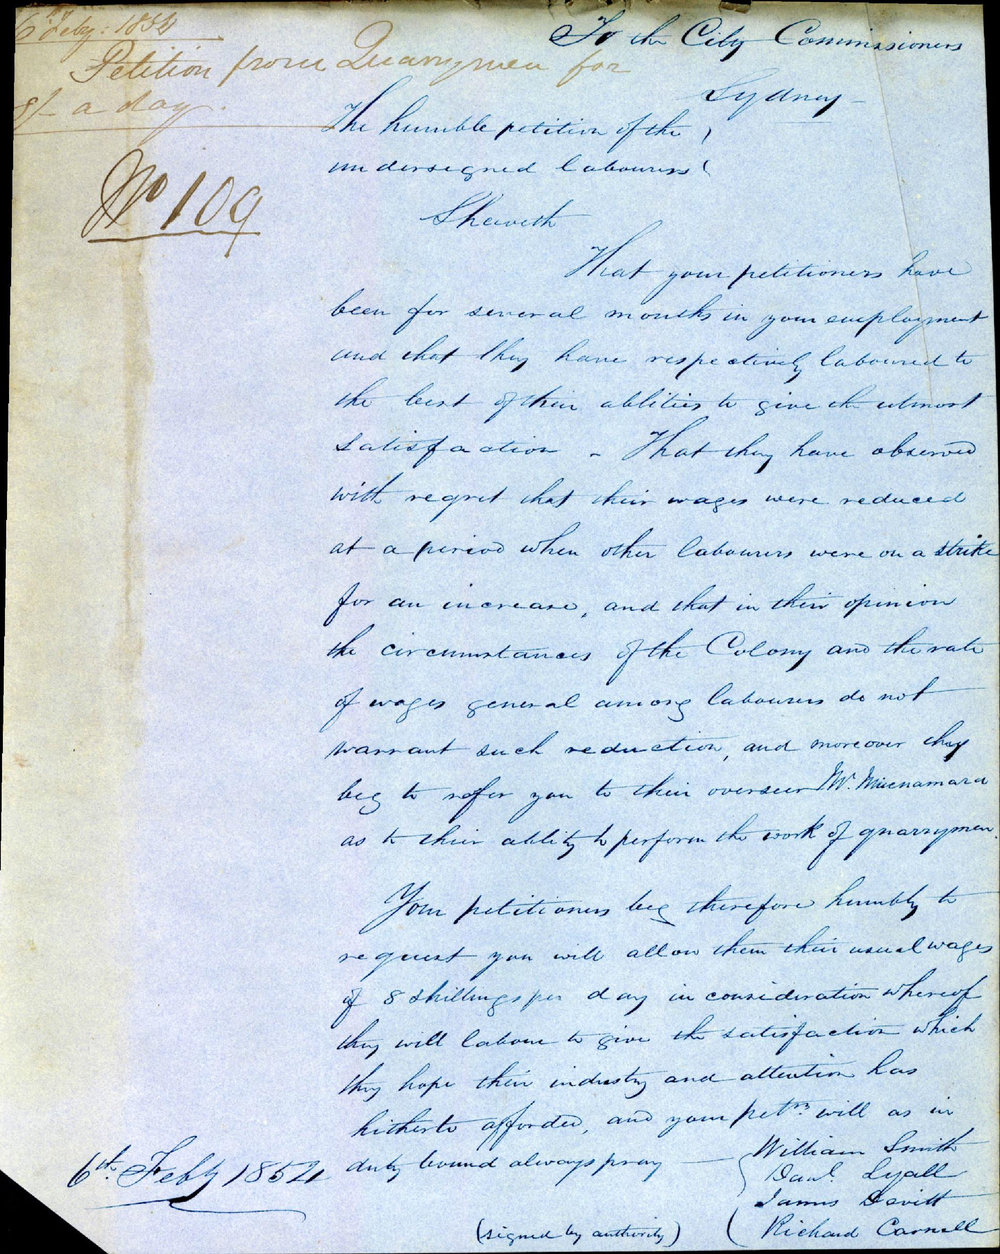 6th Feby: 1854
Petition from Quarrymen for
8/- a day.
No 109
To the City Commissioners
Sydney -
The humble petition of the
undersigned labourers
Sheweth
That your petitioners have
been for several months in your employment
and that they have respectively laboured to
the best of their ablities to give the utmost
satisfaction - That they have observed
with regret that their wages were reduced
at a period when other labourers were on a strike
for an increase, and that in their opinion
the circumstances of the Colony and the rate
of wages general among labourers do not
warrant such reduction, and moreover they
beg to refer you to their overseer Mr. Macnamara
as to their ablity to perform the work of quarrymen
Your petitioners beg therefore humbly to
request you will allow them their usual wages
of 8 shillings per day in consideration whereof
they will labour to give the satisfaction which
they hope their industry and attention has
hitherto afforded, and your petrs will as in
duty bound always pray
6th Feby 1854
William Smith
Danl. Lyall
James Devitt
(signed by authority) Richard Carnell